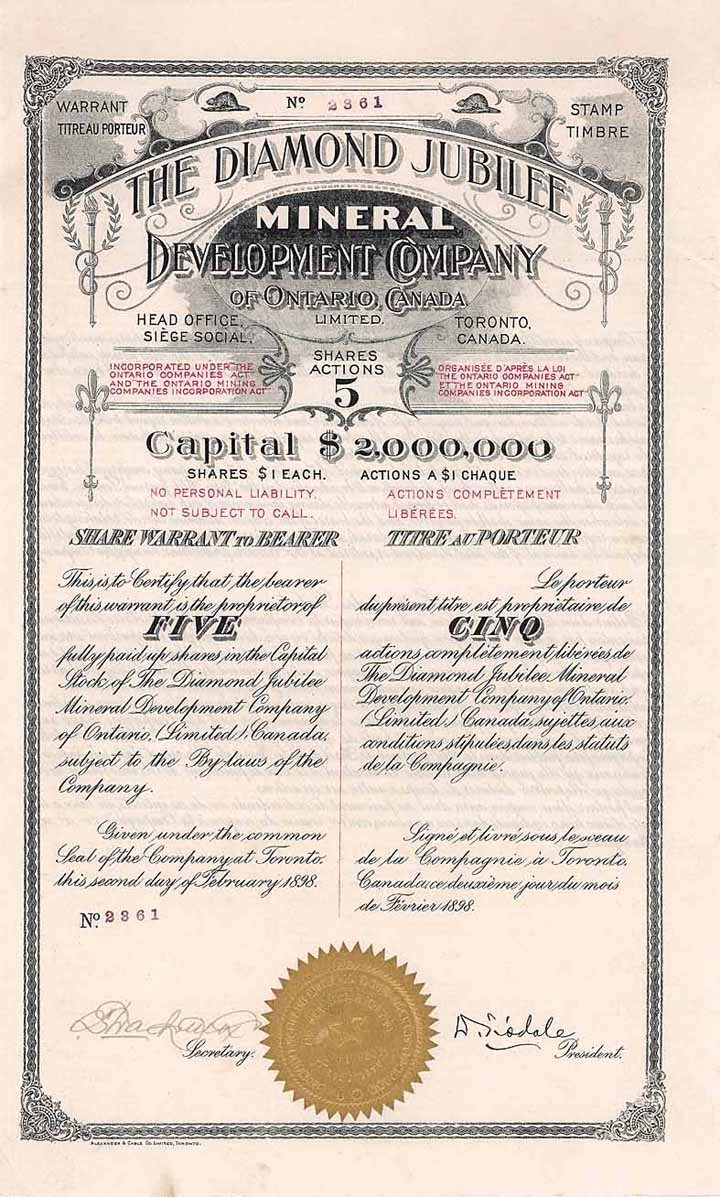 WARRANT
TITRE AU PORTEUR
Nº 2361
STAMP
TIMBRE
THE DIAMOND JUBILEE
MINERAL
DEVELOPMENT COMPANY
OF ONTARIO, CANADA
LIMITED.
HEAD OFFICE,
SIÈGE SOCIAL,
TORONTO,
CANADA.
INCORPORATED UNDER THE
ONTARIO COMPANIES ACT
AND THE ONTARIO MINING
COMPANIES INCORPORATION ACT
SHARES
ACTIONS
5
ORGANISÉE D'APRÈS LA LOI
THE ONTARIO COMPANIES ACT
ET THE ONTARIO MINING
COMPANIES INCORPORATION ACT
Capital $ 2,000,000
SHARES $1 EACH. ACTIONS A $1 CHAQUE
NO PERSONAL LIABILITY.
NOT SUBJECT TO CALL.
ACTIONS COMPLÈTEMENT
LIBÉRÉES.
SHARE WARRANT TO BEARER
This is to Certify that the bearer
of this warrant is the proprietor of
FIVE
fully paid up shares, in the Capital
Stock, of The Diamond Jubilee
Mineral Development Company
of Ontario, (Limited), Canada,
subject to the By-laws of the
Company.
Given under the common
Seal of the Company at Toronto,
this second day of February, 1898.
Nº 2361
TITRE AU PORTEUR
Le porteur
du présent titre, est propriétaire, de
CINQ
actions, complètement libérées de
The Diamond Jubilee, Mineral
Development Company of Ontario,
(Limited) Canada, sujettes, aux
conditions stipulées dans les statuts
de la Compagnie.
Signé et livré sous le sceau
de la Compagnie à Toronto,
Canada ce deuxième jour du mois
de Février 1898.
Secretary.
President.
ALEXANDER & CABLE CO. LIMITED, TORONTO.